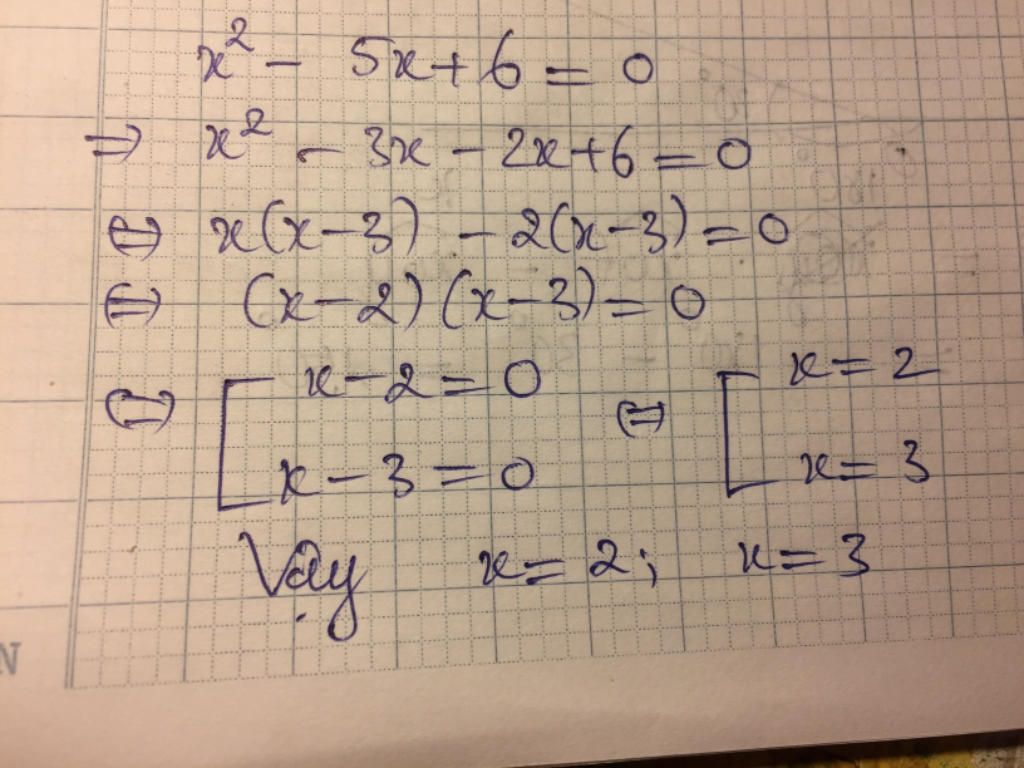 x² - 5x + 6 = 0
⇒ x² - 3x - 2x + 6 = 0
⇔ x(x - 3) - 2(x - 3) = 0
⇔ (x - 2)(x - 3) = 0
⇔ [ x - 2 = 0 ⇔ [ x = 2
x - 3 = 0 x = 3
Vậy x = 2; x = 3
N